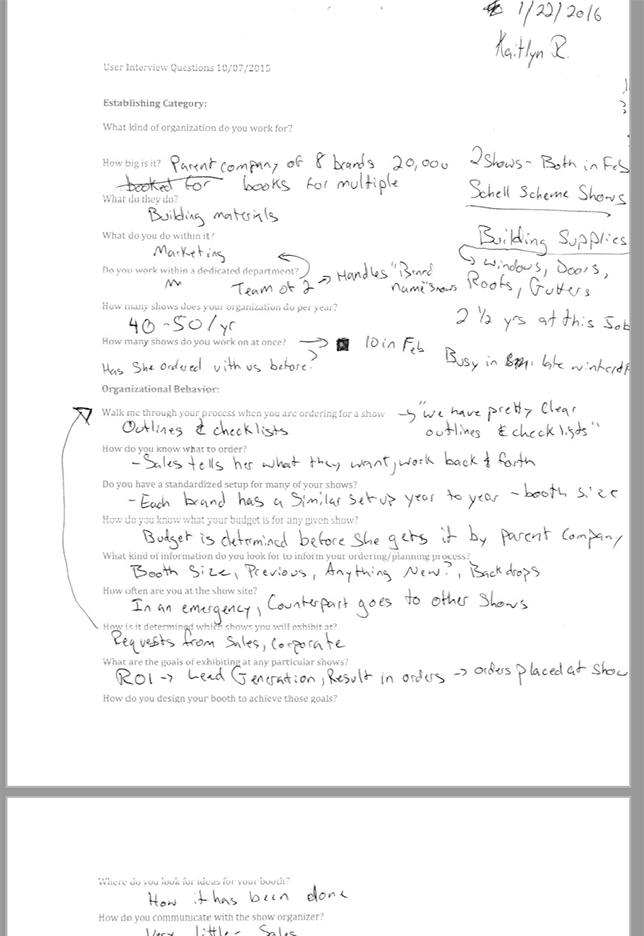 1/22/2016
Kaitlyn R.
User Interview Questions 10/07/2015
Establishing Category:
What kind of organization do you work for?
How big is it? Parent company of 8 brands 20,000
booked for books for multiple
2 Shows - Both in Feb
Schell Scheme Shows
What do they do?
Building materials
What do you do within it?
Marketing
Building Supplies
windows, Doors,
Roofs, Gutters
Do you work within a dedicated department?
Team of 2 → Handles "Brand
name" shows
How many shows does your organization do per year?
40-50/yr
2 1/2 yrs at this Job
How many shows do you work on at once? → 10 in Feb
Busy in late winter
Has she ordered with us before?
Organizational Behavior:
Walk me through your process when you are ordering for a show → "we have pretty clear
Outlines & checklists outlines & checklists"
How do you know what to order?
- Sales tells her what they want, work back & forth
Do you have a standardized setup for many of your shows?
- Each brand has a similar set up year to year - booth size
How do you know what your budget is for any given show?
Budget is determined before she gets it by parent company
What kind of information do you look for to inform your ordering/planning process?
Booth Size, Previous, Anything New?, Backdrops
How often are you at the show site?
In an emergency, Counterpart goes to other shows
How is it determined which shows you will exhibit at?
Requests from Sales, Corporate
What are the goals of exhibiting at any particular shows?
ROI → Lead Generation, Result in orders → orders placed at show
How do you design your booth to achieve those goals?
Where do you look for ideas for your booth?
How it has been done
How do you communicate with the show organizer?
Very little - Sales